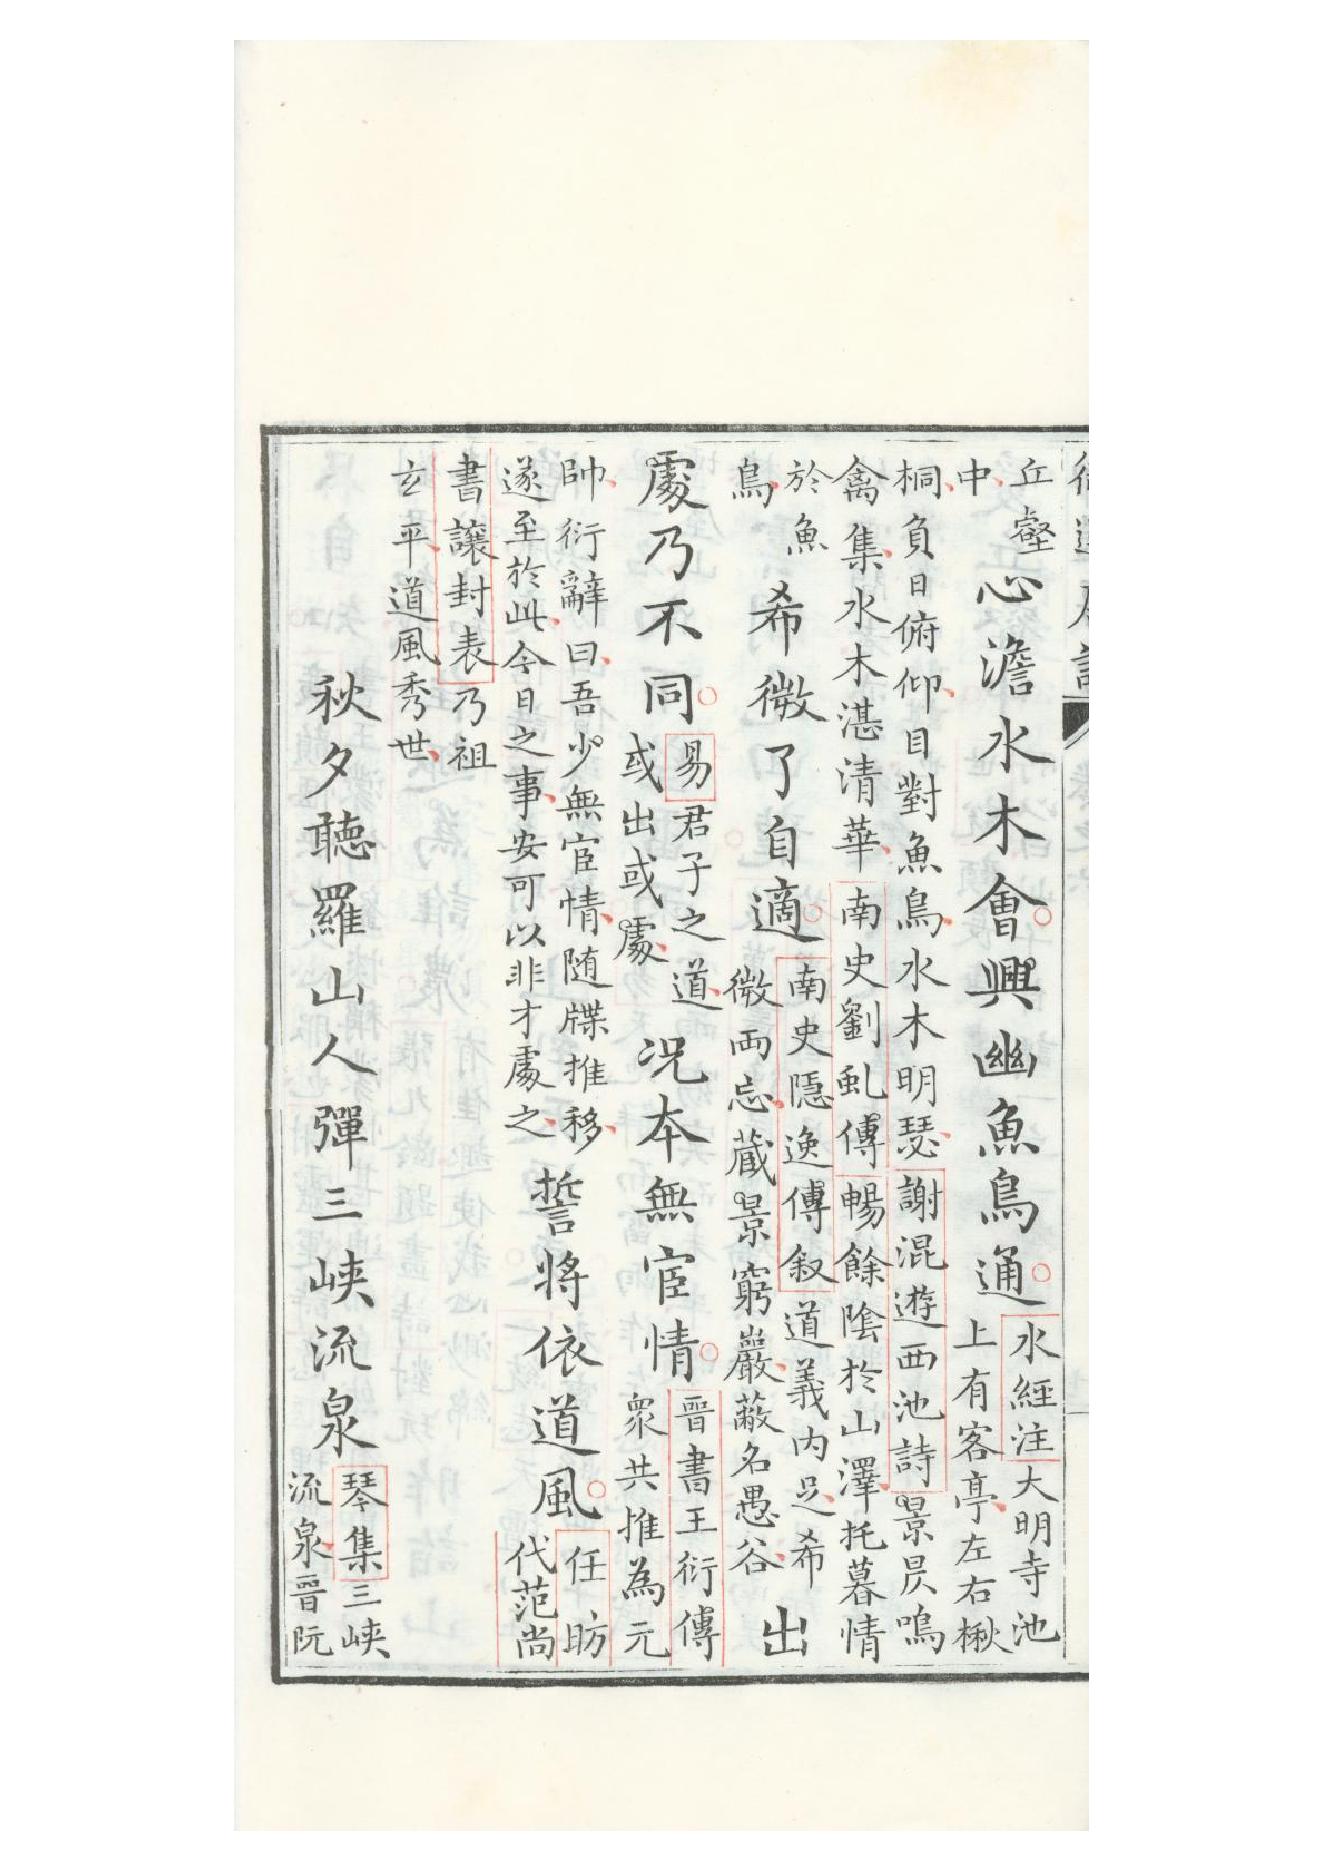 丘壑
中
心澹水木會興幽魚鳥通
水經注大明寺池
上有客亭左右楸
桐負日俯仰目對魚鳥水木明瑟謝混遊西池詩景昃鳴
禽集水木湛清華南史劉虬傳暢餘陰於山澤托暮情
於魚
鳥
希微了自適
南史隱逸傳叙道義内足希
微兩忘藏景窮巖蔽名愚谷
出
處乃不同
易君子之道
或出或處
況本無宦情
晉書王衍傳
衆共推為元
帥衍辭曰吾少無宦情随牒推移
遂至於此今日之事安可以非才處之
誓將依道風
任昉
代范尚
書讓封表乃祖
玄平道風秀世
秋夕聽羅山人彈三峽流泉
琴集三峽
流泉晉阮